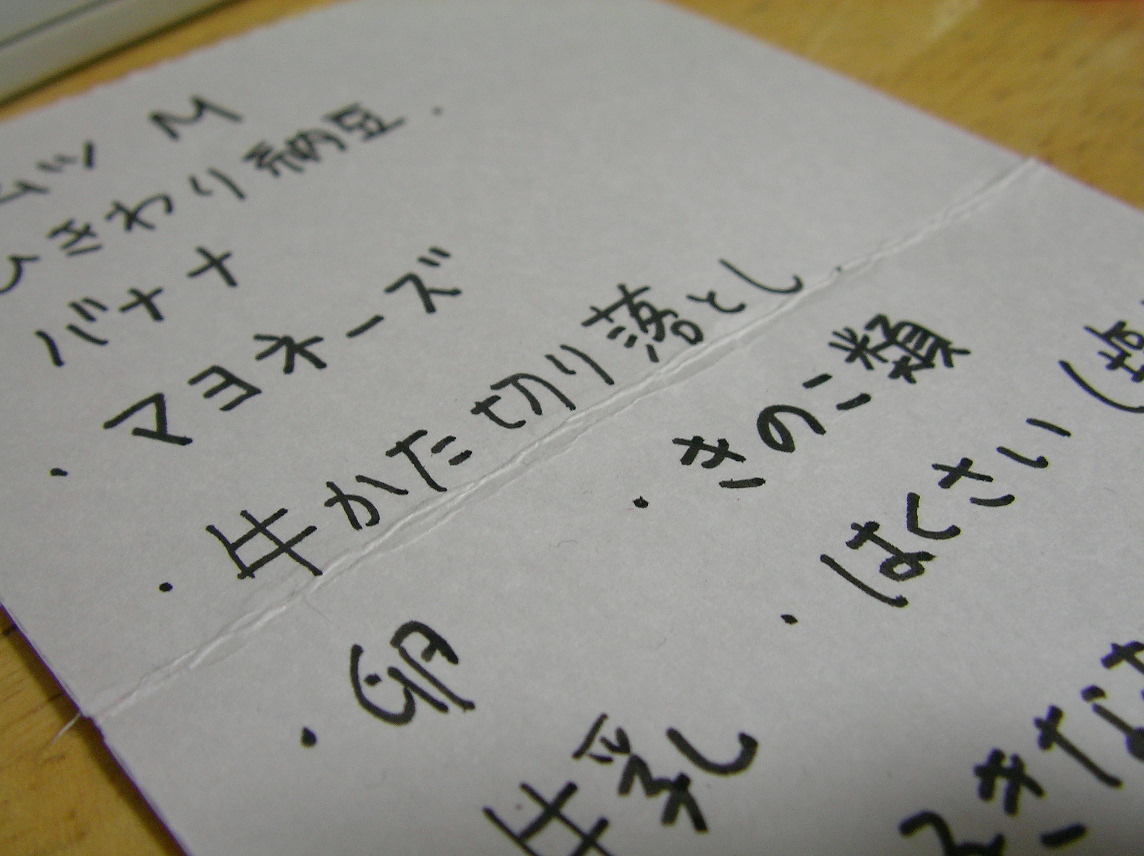 ムツ M
ひきわり納豆
バナナ
・マヨネーズ
・牛かた切り落とし
・卵
牛乳
・きのこ類
・はくさい(塩